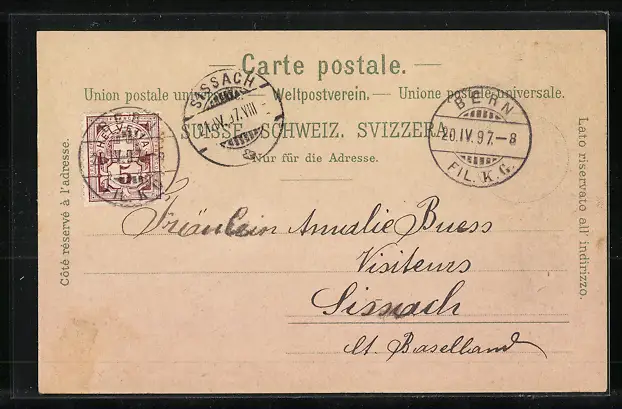 Carte postale.
Union postale universelle. — Weltpostverein. — Unione postale universale.
SUISSE. SCHWEIZ. SVIZZERA.
Nur für die Adresse.
Côté réservé à l'adresse.
Lato riservato all' indirizzo.
SISSACH
21.IV.97.VIII-
BERN
20.IV.97.-8
FIL. K. G.
HELVETIA
Fräulein Amalie Buess
Visiteurs
Sissach
Ct. Baselland